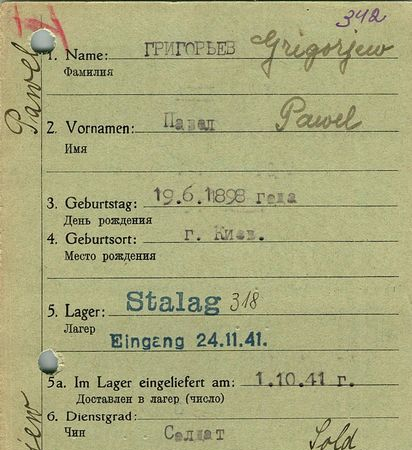 342
1. Name: ГРИГОРЬЕВ Grigorjew
Фамилия
Pawel
2. Vornamen: Павел Pawel
Имя
3. Geburtstag: 19.6.1898 года
День рождения
4. Geburtsort: г. Киев.
Место рождения
5. Lager: Stalag 318
Лагер
Eingang 24.11.41.
5a. Im Lager eingeliefert am: 1.10.41 г.
Доставлен в лагер (число)
6. Dienstgrad: Солдат Sold
Чин